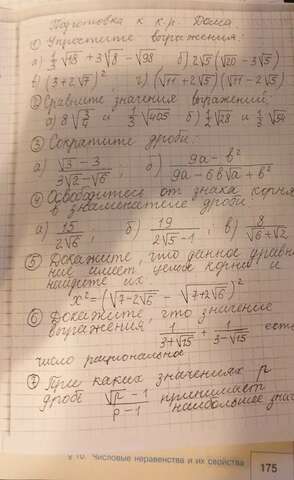 Подготовка к к.р. Дома
① Упростите выражения:
а) 1/3 √18 + 3√8 - √98 б) 2√5 (√20 - 3√5)
в) (3+2√7)² г) (√11 + 2√5)(√11 - 2√5)
② Сравните значения выражений:
а) 8√(3/4) и 1/3 √405 б) 1/2 √28 и 1/3 √54
③ Сократите дроби:
а) (√3 - 3)/(3√2 - √6); б) (9a - b²)/(9a - 6b√a + b²)
④ Освободитесь от знака корня
в знаменателе дроби
а) 15/(2√6); б) 19/(2√5 - 1); в) 8/(√6 + √2)
⑤ Докажите, что данное уравне
ние имеет целые корни и
найдите их:
x² = (√(7-2√6) - √(7+2√6))²
⑥ Докажите, что значение
выражения 1/(3+√15) + 1/(3-√15) есть
число рациональное
⑦ При каких значениях p
дробь (√p - 1)/(p - 1) принимает
наибольшее знач
§ 10. Числовые неравенства и их свойства
175